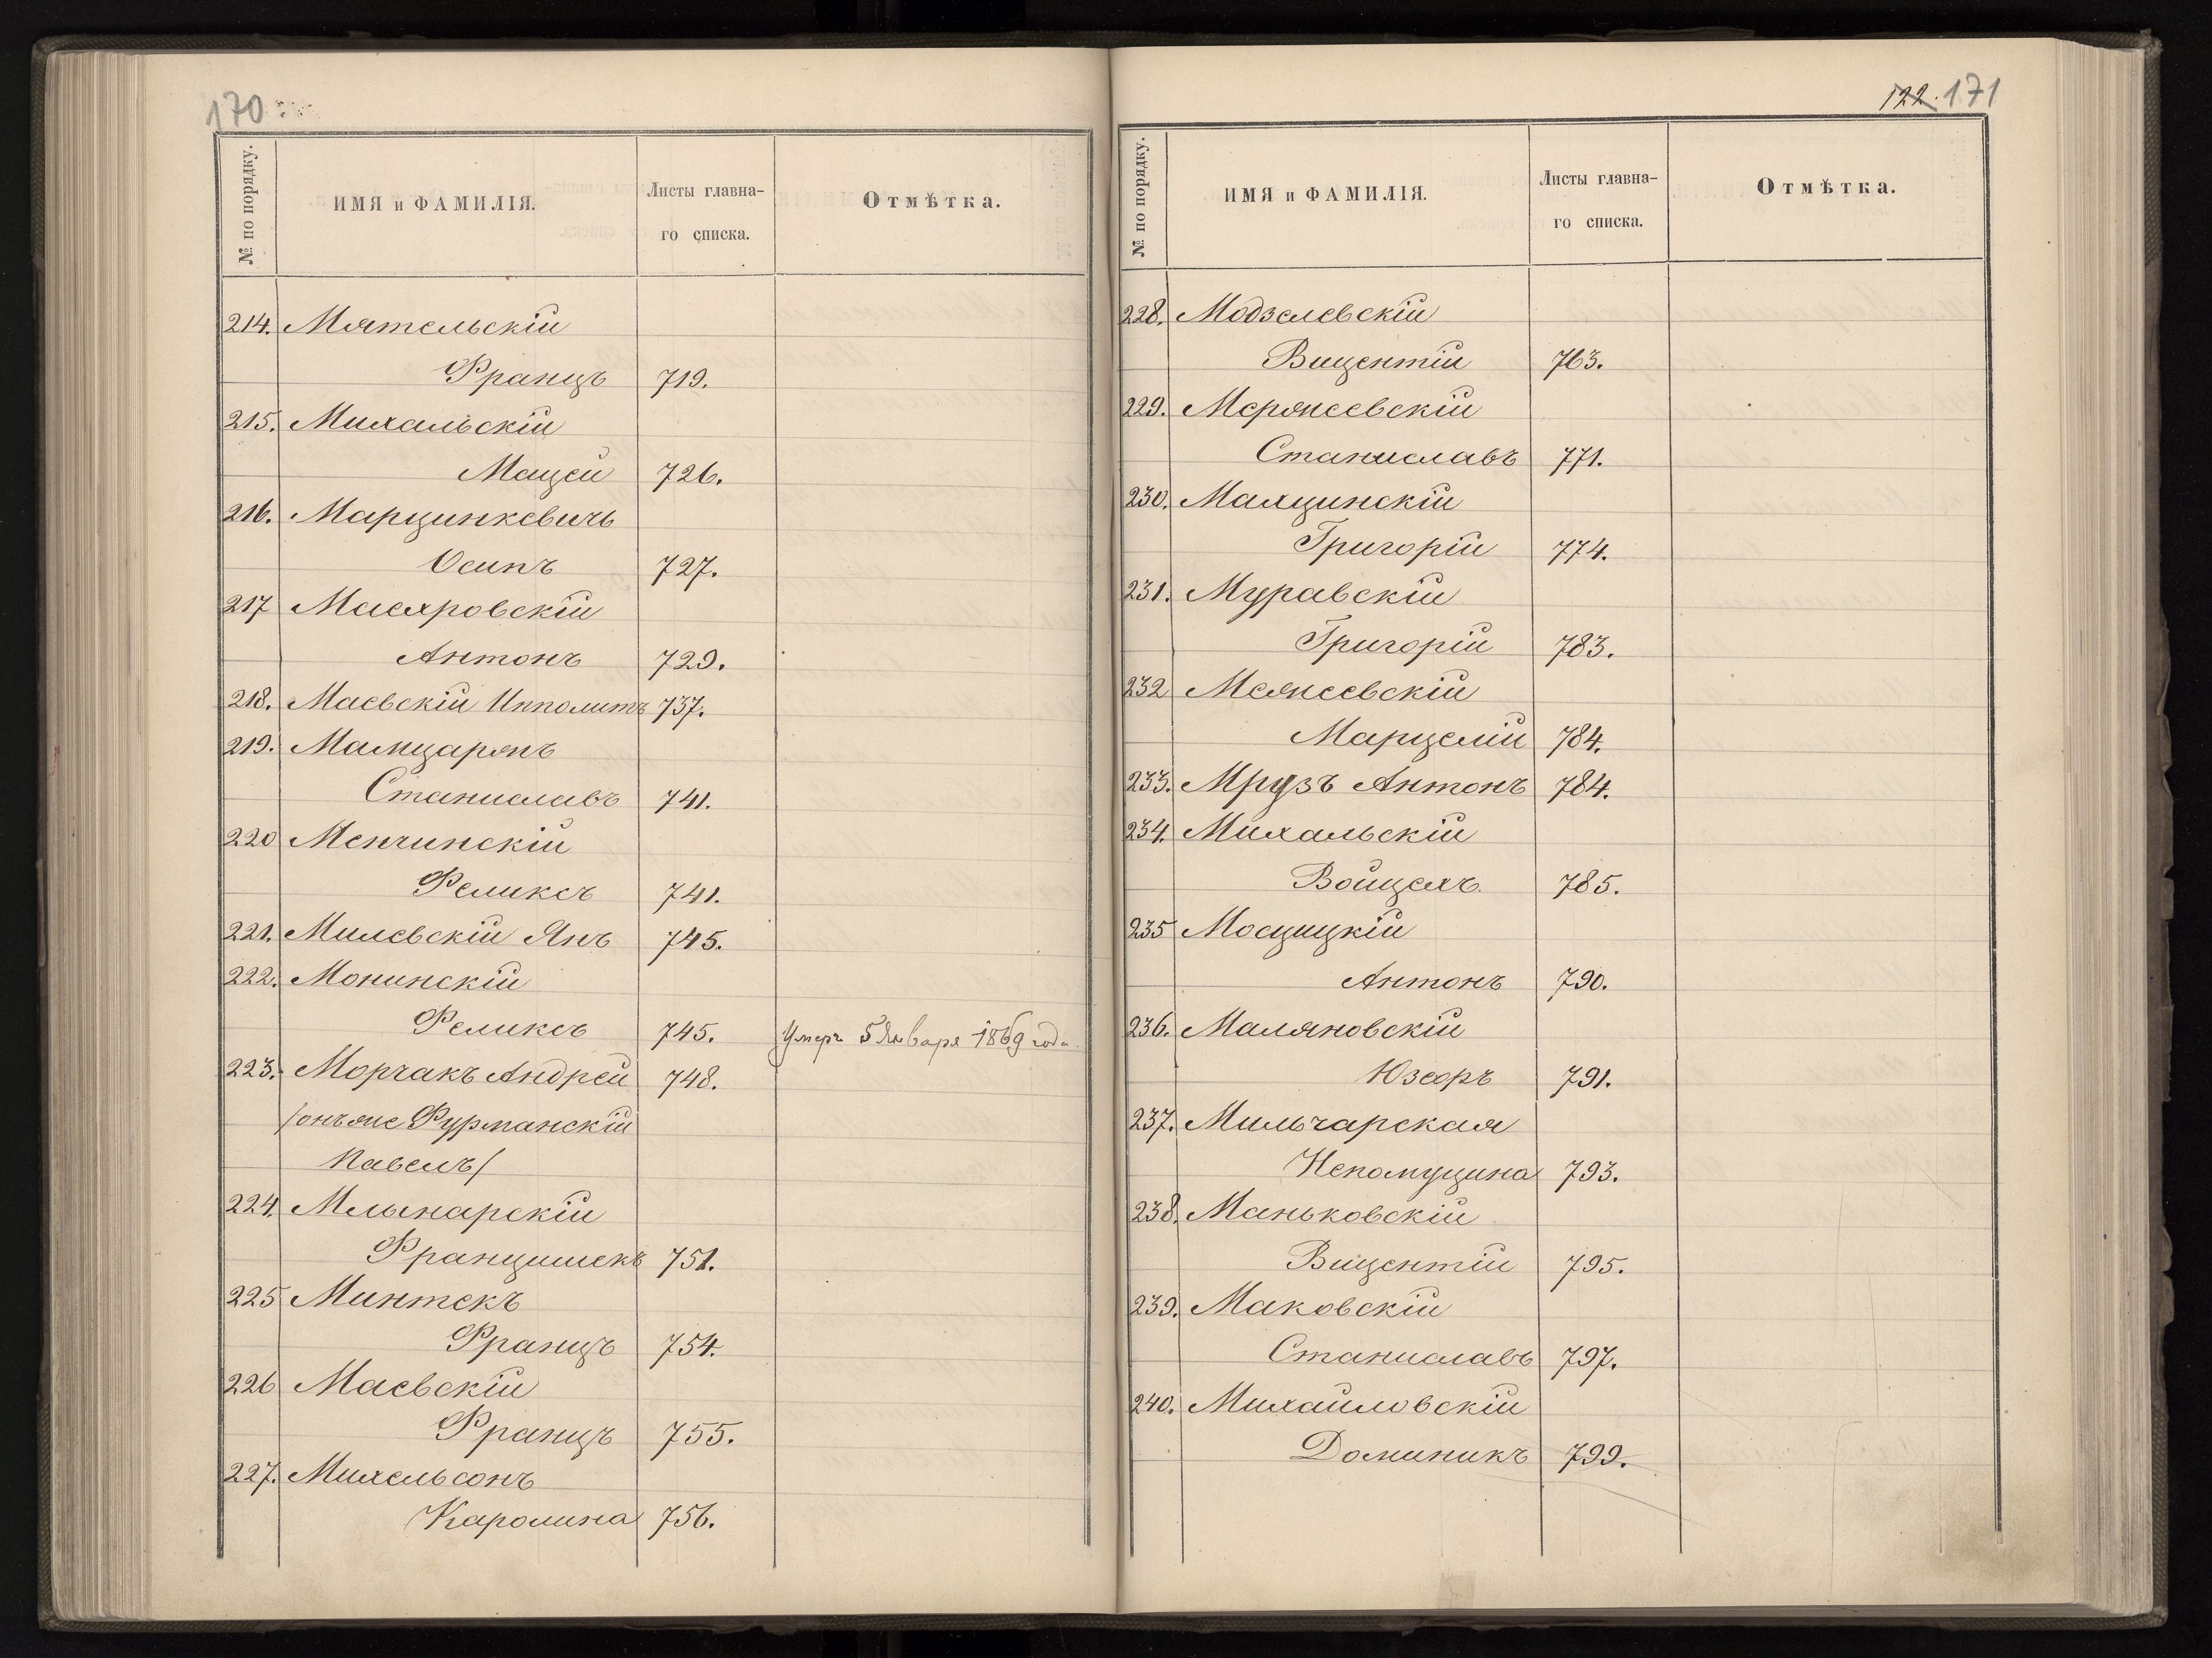 170
№ по порядку.
ИМЯ и ФАМИЛІЯ.
Листы главна-
го списка.
Отмѣтка.
214. Мятельскій
Францъ 719.
215. Михальскій
Мацей 726.
216. Марцинкевичъ
Осипъ 727.
217 Масяровскій
Антонъ 729.
218. Маевскій Ипполитъ 737.
219. Мамцаржъ
Станиславъ 741.
220 Менчинскій
Феликсъ 741.
221. Милевскій Янъ 745.
222. Монинскій
Феликсъ 745. Умеръ 5 Января 1869 года
223.Морчакъ Андрей 748.
/онъ же Фурманскій
Павелъ/
224. Млынарскій
Францишекъ 751.
225 Минтекъ
Францъ 754.
226 Маевскій
Францъ 755.
227. Михельсонъ
Каролина 756.
122. 171
№ по порядку.
ИМЯ и ФАМИЛІЯ.
Листы главна-
го списка.
Отмѣтка.
228. Модзелевскій
Вицентій 763.
229. Мержеевскій
Станиславъ 771.
230. Махцинскій
Григорій 774.
231. Муравскій
Григорій 783.
232 Межеевскій
Марцелій 784.
233. Мрузъ Антонъ 784.
234. Михальскій
Войцехъ. 785.
235 Мосцицкій
Антонъ 790.
236. Маляновскій
Юзефъ 791.
237. Мильчарская
Непомуцина 793.
238. Маньковскій
Вицентій 795.
239. Маковскій
Станиславъ 797.
240. Михайловскій
Доминикъ 799.